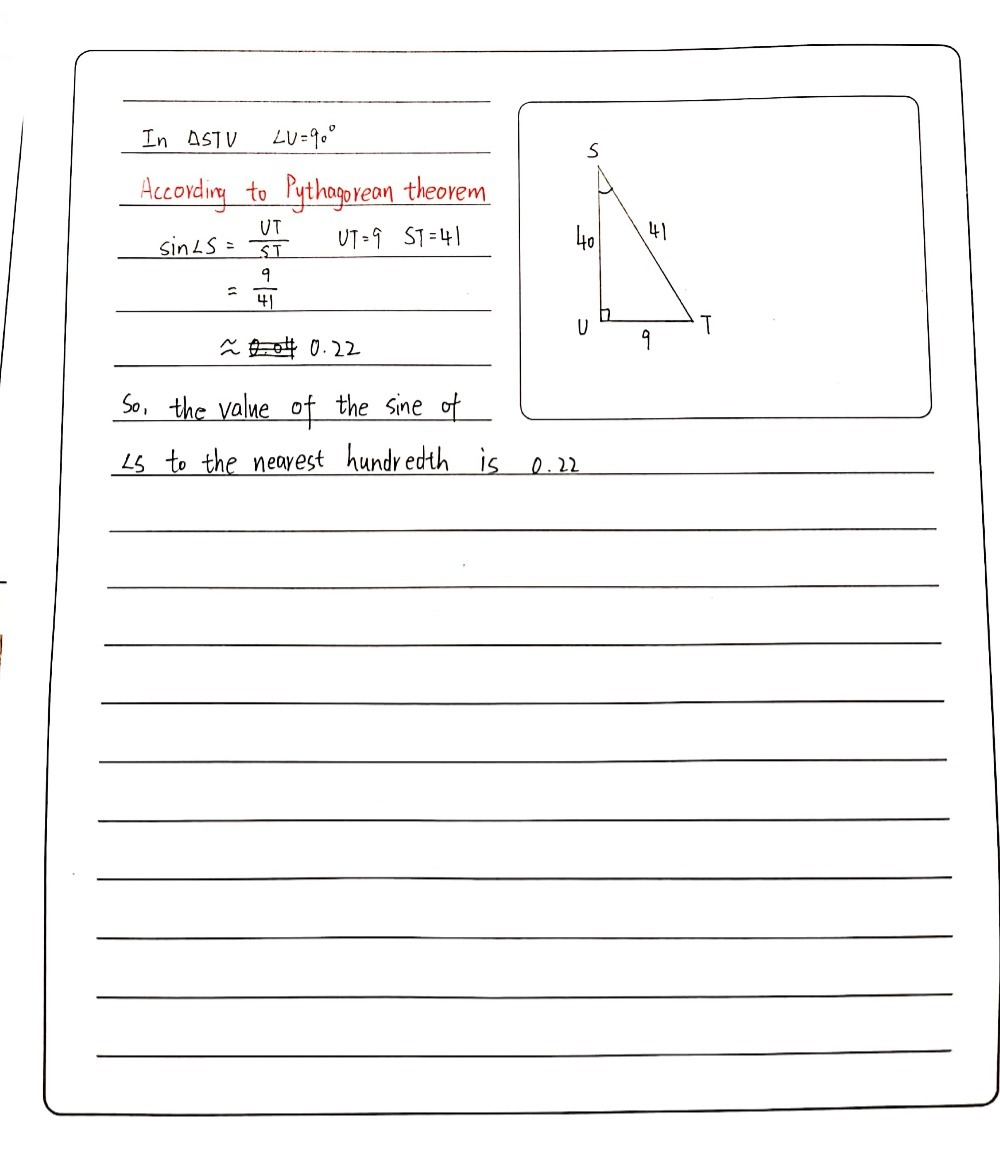 In ΔSTU ∠U=90°
According to Pythagorean theorem
sin∠S = UT/ST UT=9 ST=41
= 9/41
≈ 0.22
So, the value of the sine of
∠S to the nearest hundredth is 0.22
S
40
41
U
T
9